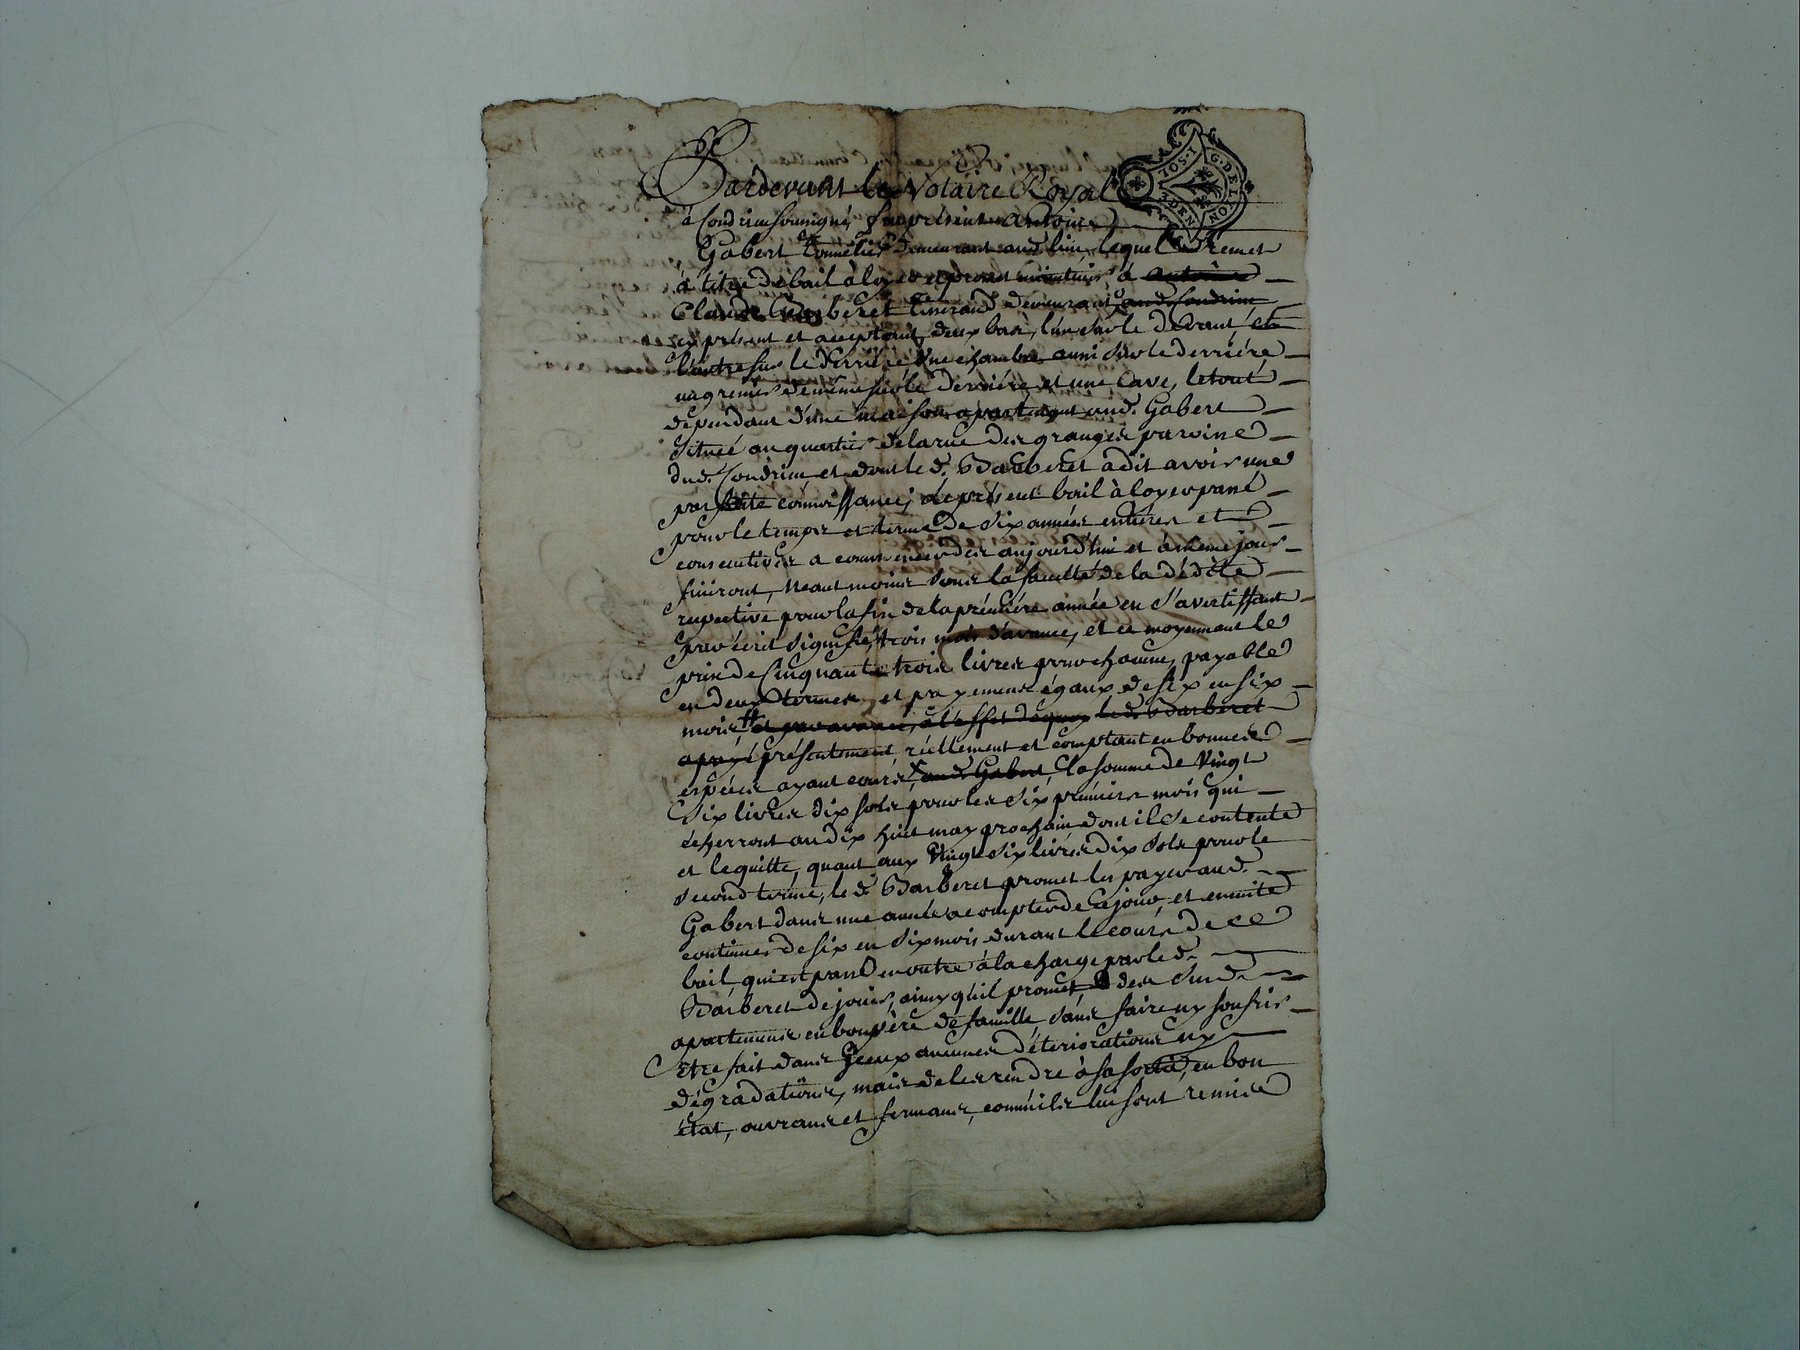 Pardevant le Notaire Royal
G. DEL
10S. 1
DEN
ON
à Condrieu soussigné, fut présent antoine
Gabert tonnélier demeurant aud. lieu, lequel remet
à titre de bail à loyer et promet maintenir à antoine
Claude Barberet tisserand demeurant aud. Condrieu
cy présent et acceptant, deux bas, l'un sur le devant, et
l'autre sur le derrière, une chambre aussi sur le derriére
un grenier de même sur le derriére et une Cave, le tout
dépendant d'une maison apartenant aud. Gabert
Située au quartier de la rue des granges paroisse
dud. Condrieu et dont led. Barberet a dit avoir une
parfaite connoissance, le présent bail à loyer passé
pour le temps et terme de six années entières et
consecutives a commencer dès aujourd'hui et à même jour
finiront, Neantmoins sous la faculté de la dédite
respective pour la fin de la prémiére année en s'avertissant
par écrit signifié, trois mois d'avance, et ce moyennant le
prix de Cinquante trois livres pour chacune, payable
en deux termes, et payemens égaux de six en six
mois et par avance, à l'effet de quoy led. Barberet
a payé présentement réellement et comptant en bonnes
espéces ayant cours, aud. Gabert, la somme de Vingt
Six livres dix sols pour les six prémiers mois qui
écherront au dix huit may prochain dont il se contente
et le quitte, quant aux Vingt six livres dix sols pour le
second terme, led. Barberet promet les payer aud.
Gabert dans une année a compter de ce jour, et ensuite
continuer de six en six mois durant le cours de ce
bail, qui est passé en outre à la charge par led.
Barberet de jouir, ainsy qu'il promet des susd.
apartemens en bon pére de famille, sans faire ny soufrir
être fait dans yceux aucunes déteriorations ny
dégradations, mais de les rendre à sa sortie, en bon
état, ouvrans et fermans, comm'ils lui sont remis